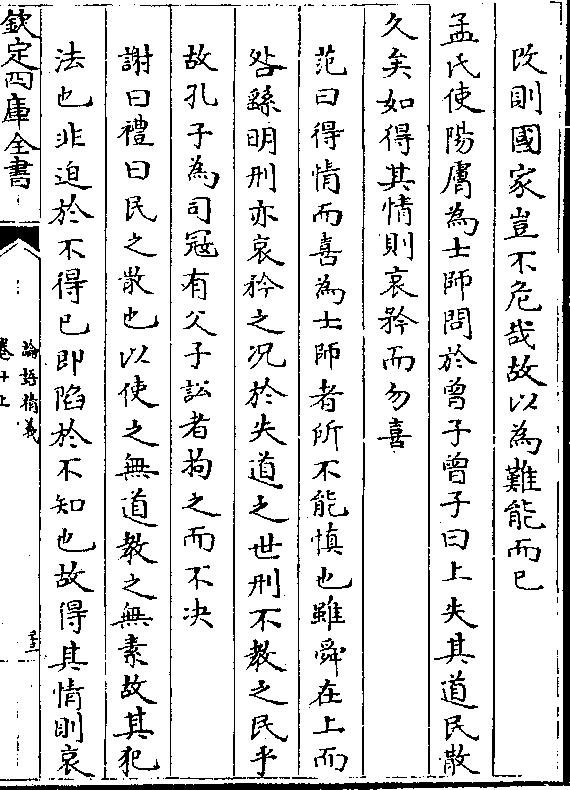 改則國家豈不危哉故以為難能而已
孟氏使陽膚為士師問於曾子曾子曰上失其道民散
久矣如得其情則哀矜而勿喜
范曰得情而喜為士師者所不能慎也雖舜在上而
咎繇明刑亦哀矜之况於失道之世刑不教之民乎
故孔子為司冦有父子訟者拘之而不决
謝曰禮曰民之散也以使之無道教之無素故其犯
法也非迫於不得已即陷於不知也故得其情則哀
欽定四庫全書
論語精義
卷十上